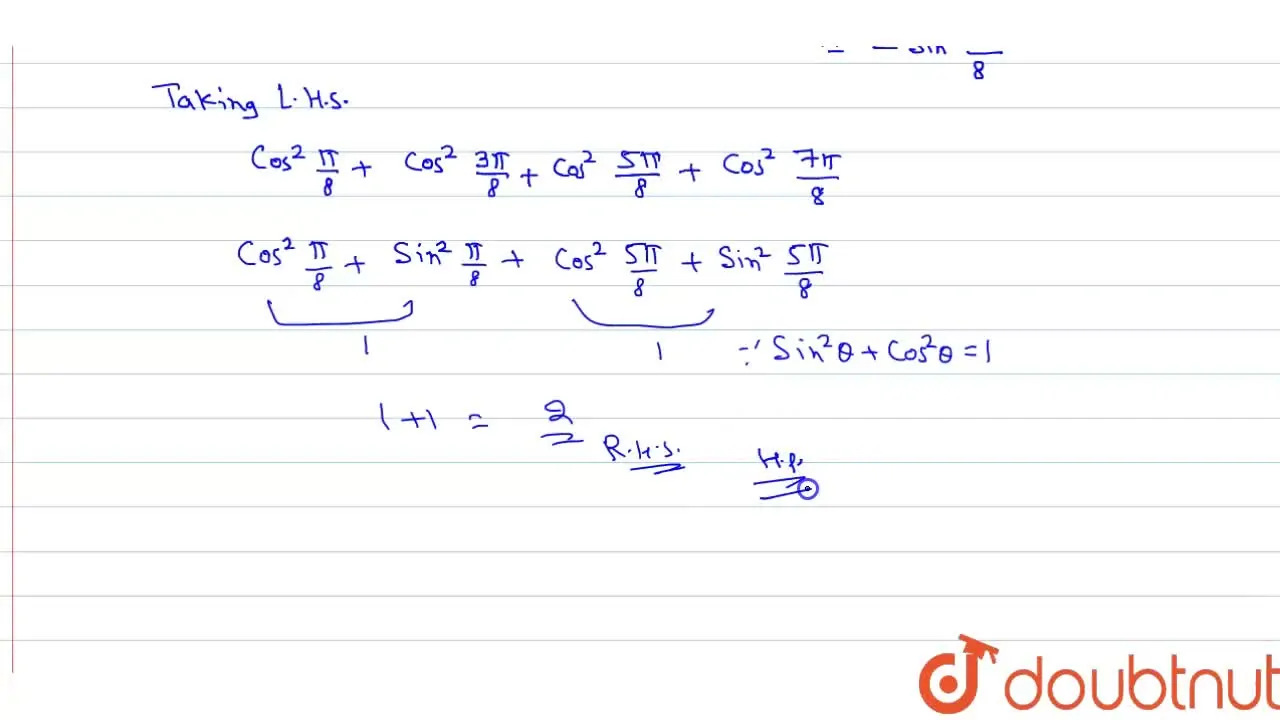 Sin
8
Taking L.H.S.
Cos² π/8 + Cos² 3π/8 + Cos² 5π/8 + Cos² 7π/8
Cos² π/8 + Sin² π/8 + Cos² 5π/8 + Sin² 5π/8
1 1 ∵ Sin²θ + Cos²θ = 1
1 + 1 = 2
R.H.S. H.P.
doubtnut